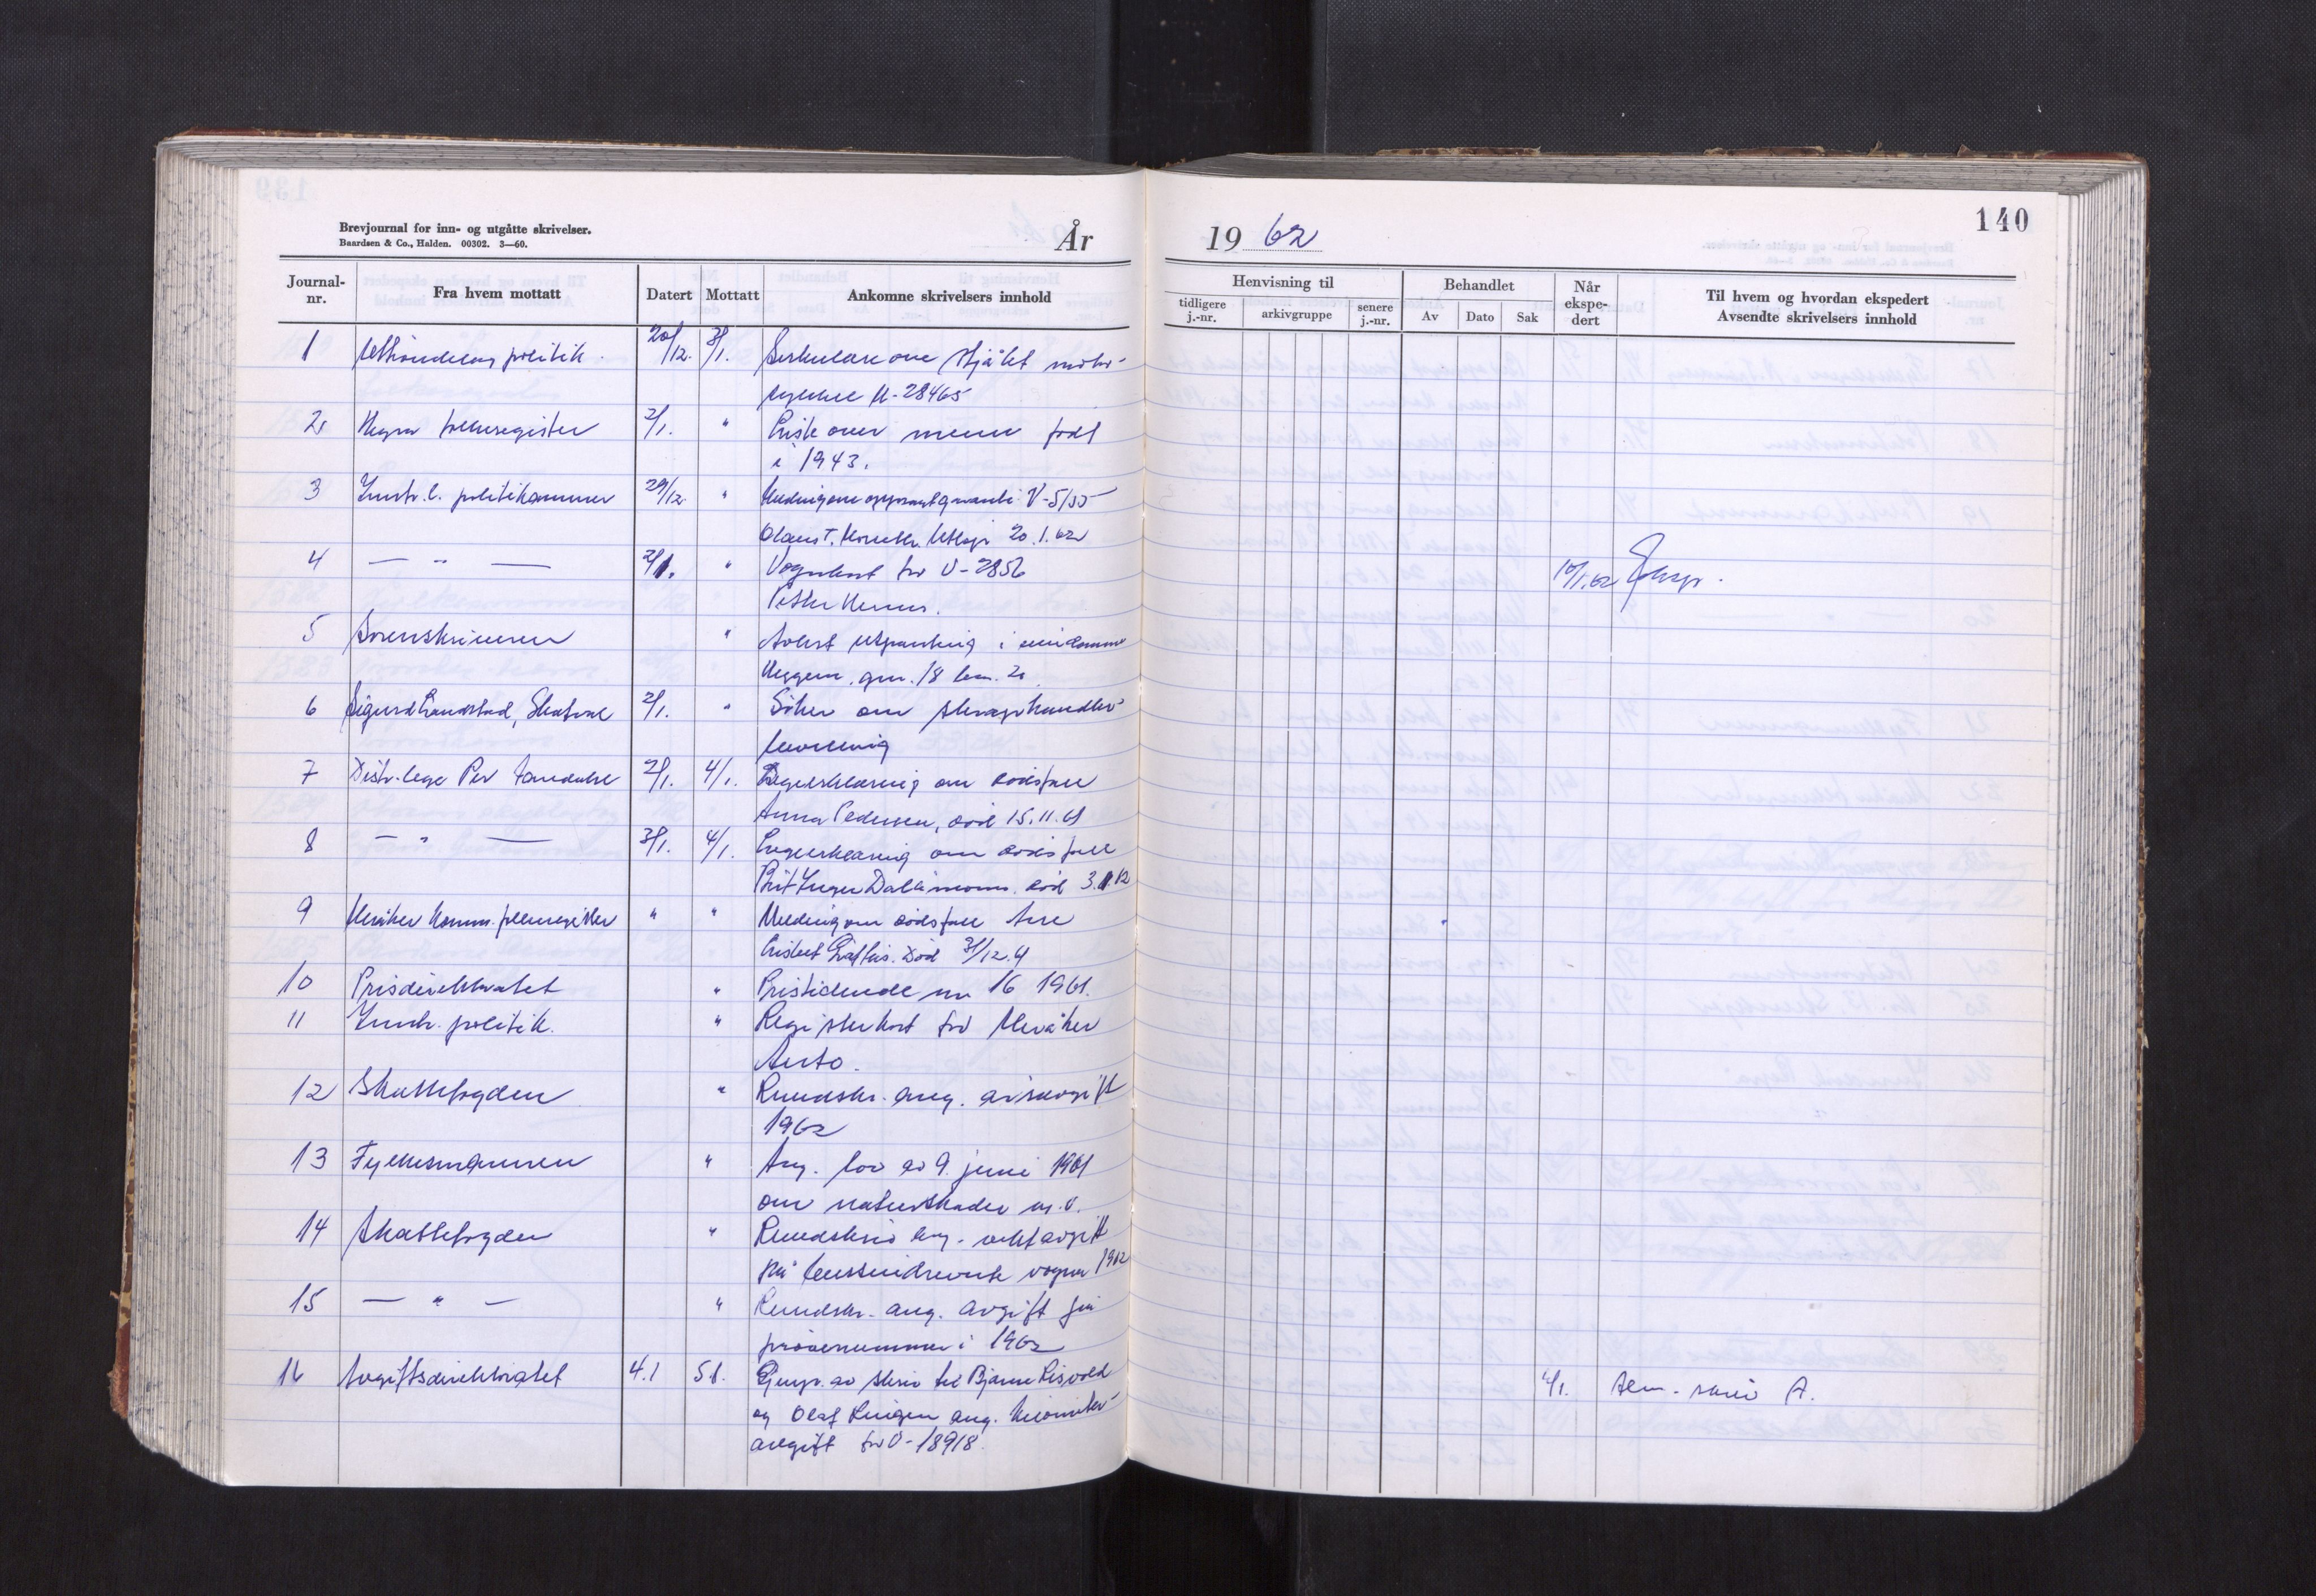 140
Brevjournal for inn- og utgåtte skrivelser.
Baardsen & Co., Halden. 00302. 3—60.
År 19 62
Journal-nr.
Fra hvem mottatt
Datert
Mottatt
Ankomne skrivelsers innhold
Henvisning til
tidligere j.-nr.
arkivgruppe
senere j.-nr.
Behandlet
Av
Dato
Sak
Når ekspedert
Til hvem og hvordan ekspedert
Avsendte skrivelsers innhold
1 politik. 20/12. 3/1. Sirkulære om stjålet motor-
sykkel U-28465
2 Hegra folkeregister 2/1. " Liste over menn født
i 1943.
3 Inntr. l. politikammer 29/12. " Melding om opphørt garanti V-5135
Olaus T. Utløp 20.1.62
4 — " — 2/1. " Vognkort for U-2856 10/1.62 Eksp.
Petter
5 Sorenskriveren " Avlyst utpanting i eiendomme
gnr. 18 bnr. 2
6 Sigurd Skatval 2/1. " Søker om skraphandler-
bevilling
7 Distr.lege Per 2/1. 4/1. Legeerklæring om dødsfall
Anna Pedersen, død 15.11.61
8 — " — 3/1. 4/1. Legeerklæring om dødsfall
Brit Inger død 3.1.62
9 Meråker komm. folkeregister " " Melding om dødsfall
Død 31/12.61
10 Prisdirektoratet " Pristidende nr 16 1961.
11 Inntr. politik. " Registerkort for Meråker
Auto.
12 Skattefogden " Rundskr. ang. årsavgift
1962
13 Fylkesmannen " Ang. lov av 9. juni 1961
om naturskader m.v.
14 Skattefogden " Rundskriv ang. vektavgift
på bensindrevne vogner 1962
15 — " — " Rundskr. ang. avgift på
prøvenummer i 1962
16 Avgiftsdirektoratet 4.1 5.1. Gjenp. av skriv til Bjarne
og Olaf ang. kilometer-
avgift for U-18918. skriv A.